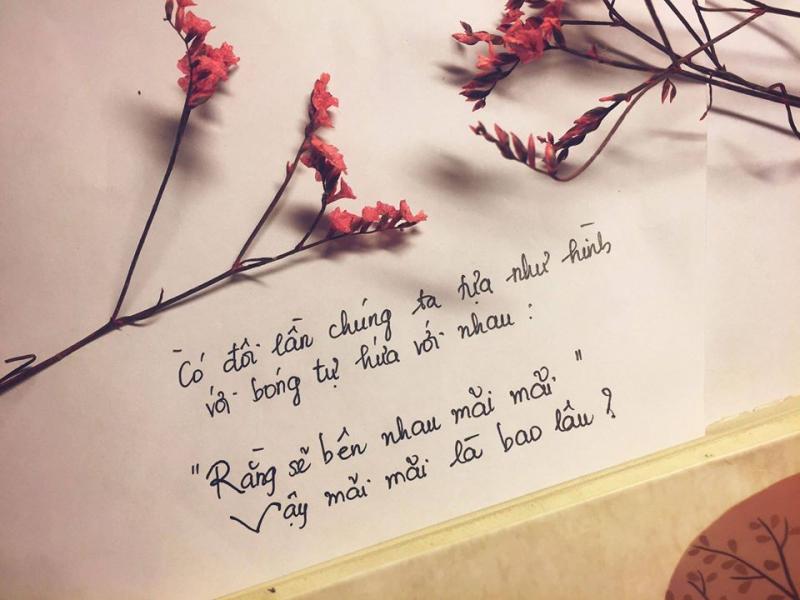 Có đôi lần chúng ta tựa như hình
với bóng tự hứa với nhau :
"Rằng sẽ bên nhau mãi mãi "
Vậy mãi mãi là bao lâu ?